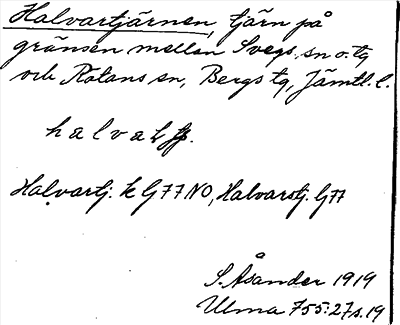 Halvartjärnen, tjärn på
gränsen mellan Svegs sn o. tg
och Rätans sn, Bergs tg, Jämtl. l.
halvat
Halvartj. k G77 NO, Halvarstj. G77
S. Åsander 1919
Ulma 755:27 s. 19